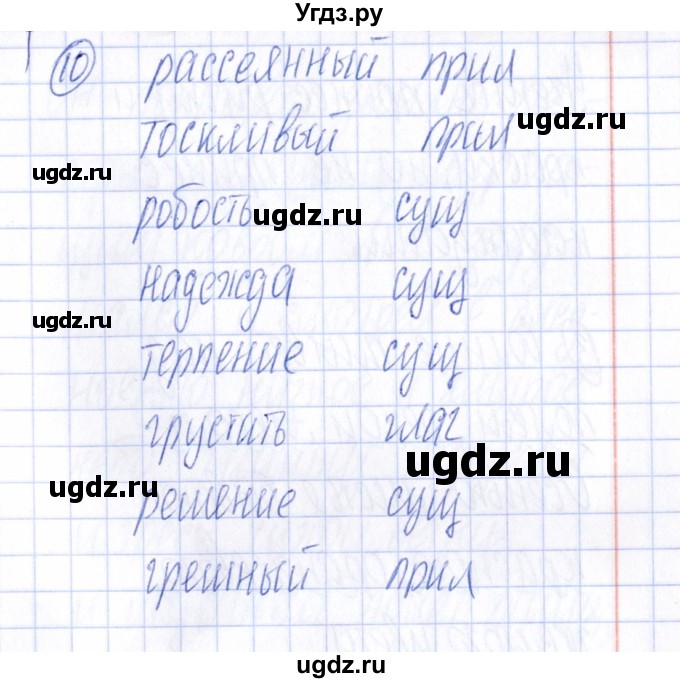 Угдз.ру
10 рассеянный прил
тоскливый прил
ugdz.ru
ugdz.ru
робость сущ
ugdz.ru
надежда сущ
ugdz.ru
терпение сущ
грустать глаг
ugdz.ru
ugdz.ru
решение сущ
грешный прил
ugdz.ru
ugdz.ru